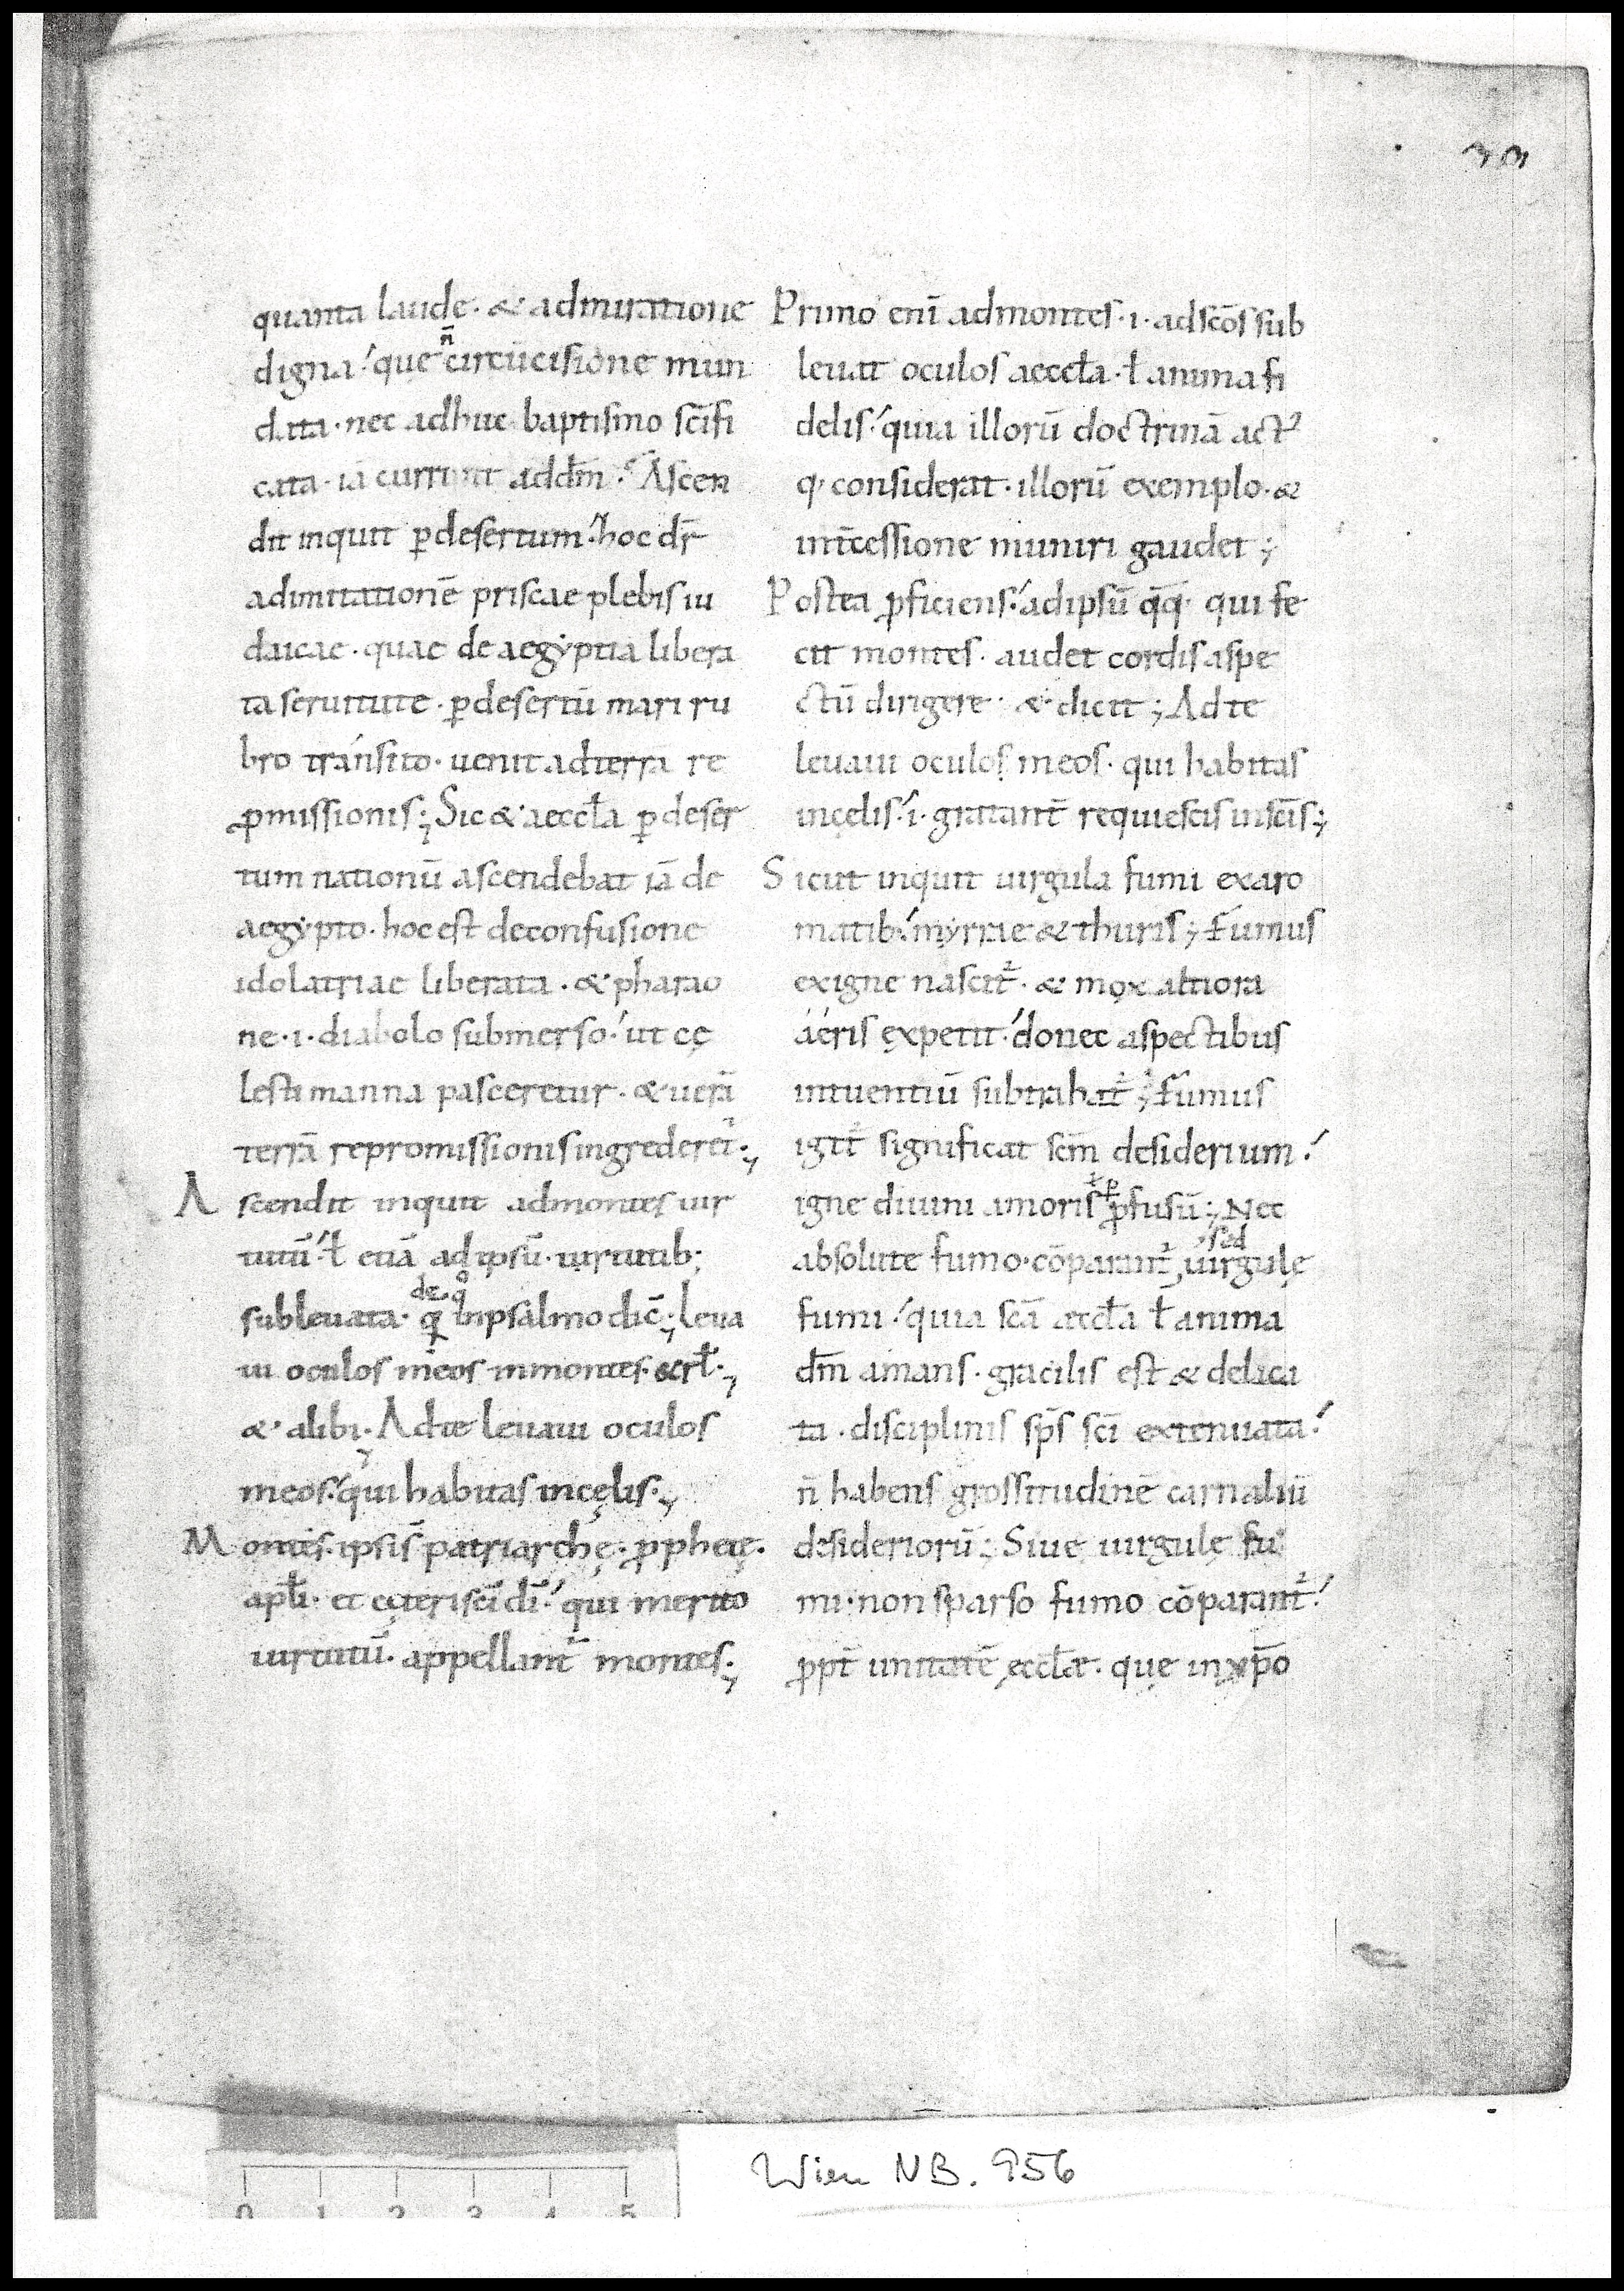 quanta laude · & admiratione
n̄
digna ·' quę circūcisione mun
data · nec adhuc baptismo sc̄ifi
cata · iā currit add̄m ·' Ascen
dit inquit ꝑdesertum ·' hoc dr̄
adimitationē priscae plebis iu
daicae · quae de aegẏptia libera
ta seruitute · ꝑdesertū mari ru
bro tránsito · uenit adterra re
ꝓmissionis :, Sic &' aeccl̄a ꝑ deser
tum nationū ascendebat iā de
aegẏpto · hoc est deconfusione
idolatriae liberata · &' pharao
ne · i · diabolo submerso ·' ut cę
lesti manna pasceretur · & uerā
terrā repromissionis ingrederet̄ :,
Ascendit inquit admontes uir
tutū ·' ł etiā adipsū · uirtutib;
de · q°
subleuata · q̄ inpsalmo dic̄ :, leua
ui oculos meos inmontes · & rł :,
&' alibi · Adte leuaui oculos
meos ·' qui habitas incęlis :,
Montes · ipsis patriarchę · ꝓphetę ·
apłi · et cęteri sc̄i dī ·' qui merito
uirtutū · appellant̄ montes :,
Primo enī admontes · i · adsc̄os sub
leuat oculos aeccl̄a · ł anima fi
delis ·' quia illorū doctrinā act'
q· considerat · illorū exemplo · &
int̄cessione muniri gaudet ;
Postea ꝓficiens ·' adipsū q̄q· qui fe
cit montes · audet cordis aspe
ctū dirigere · &' dicit ; Adte
leuaui oculos meos · qui habitas
incęlis ·' i · gratant̄ requiescis insc̄is ;
Sicut inquit uirgula fumi exaro
matib; ·' mẏrrae & thuris ; Fumus
exigne nascit̄ · & mox altiora
áeris expetit ·' donec aspectibus
intuentiū subtrahat̄ ; Fumus
igit̄ significat sc̄m desiderium ·'
ł ꝑ
igne diuini amoris ꝓfusū :, Nec
sed
absolute fumo · cōparant̄, uirgulę
fumi ·' quia sc̄a aeccl̄a ł anima
d̄m amans · gracilis est & delica
ta · disciplinis sp̄s sc̄i extenuata ·'
n̄ habens grossitudinē carnaliū
desideriorū :, Siue uirgulę fu
mi · non sparso fumo cōparant̄ ·'
ꝓpt̄ unitatē ęccl̄ae · quę inxp̄o
Wien NB. 956
0 1 2 3 4 5